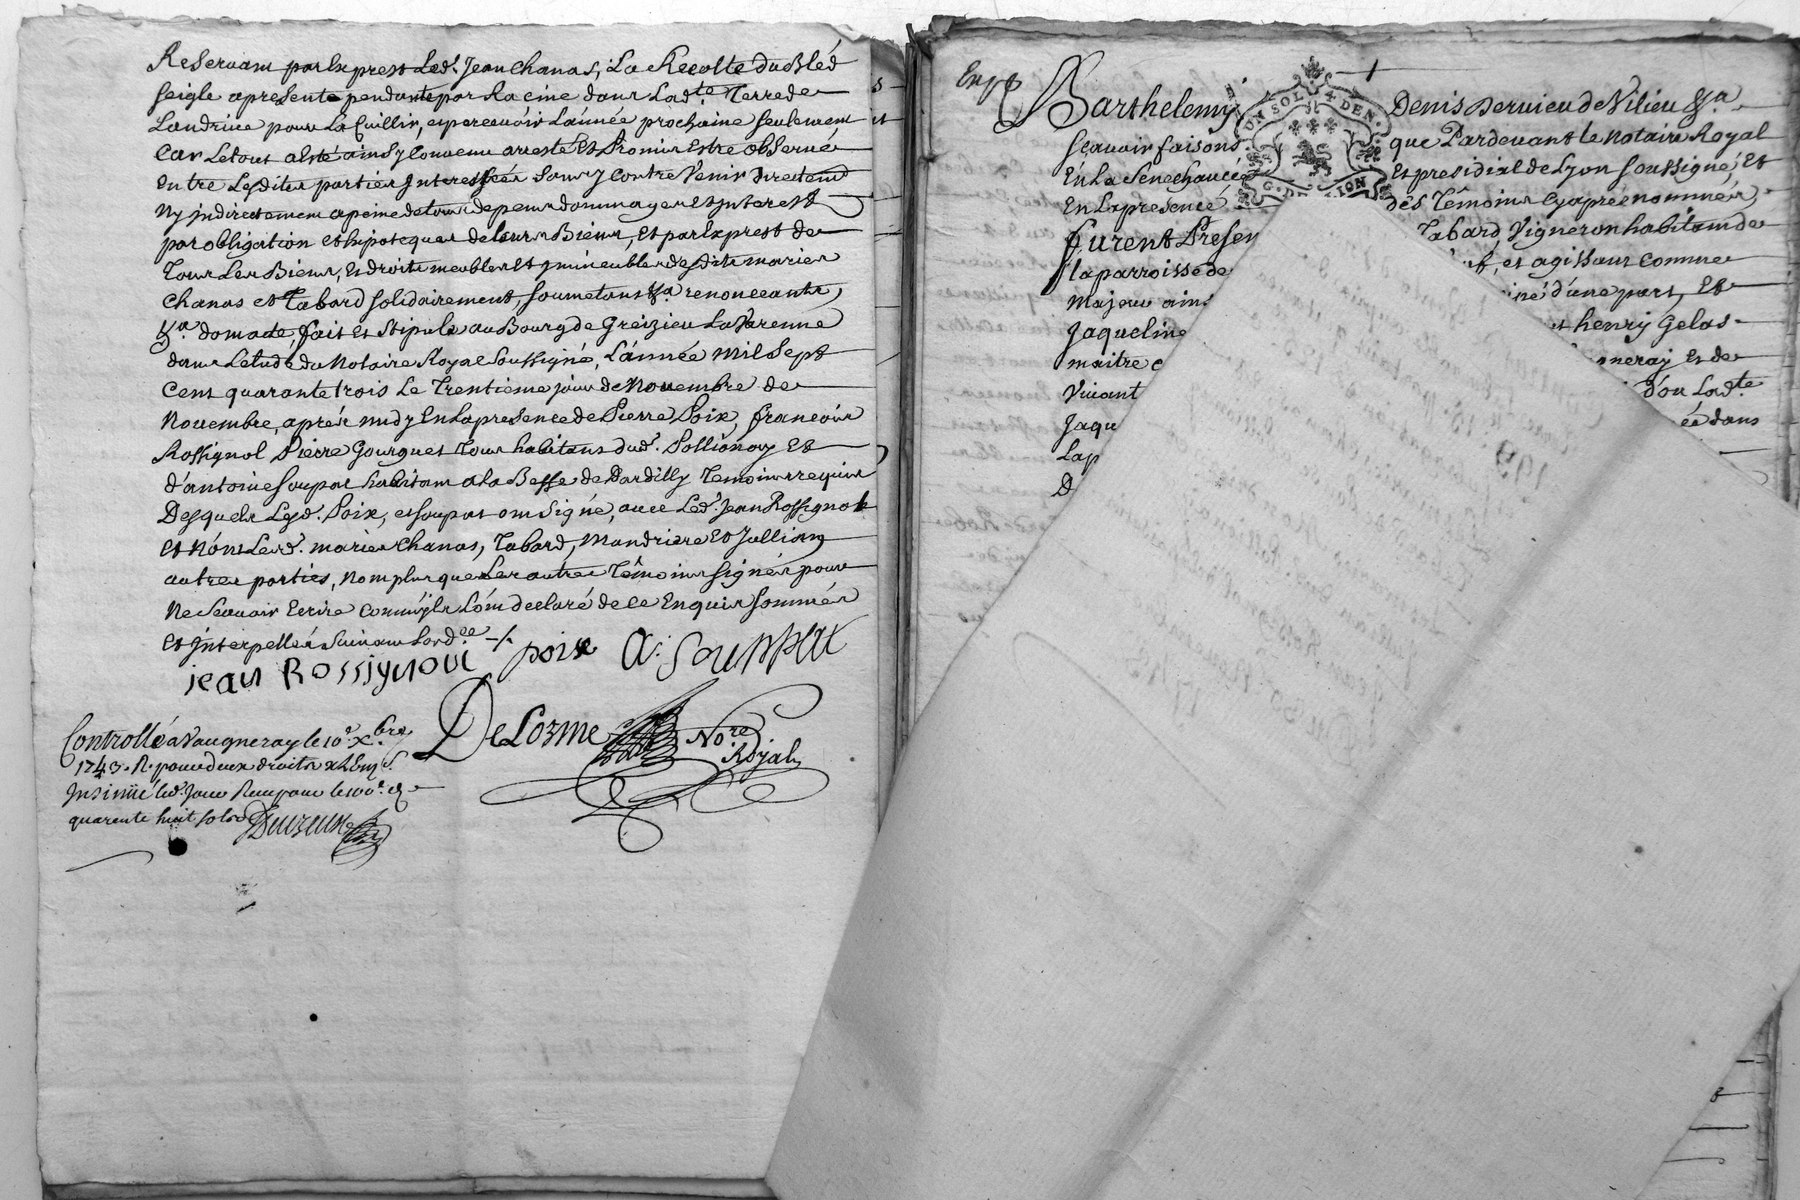 Reservant par Exprest Led.t Jean Chanas, La Recolte du Bled
seigle apresente pendante par Racine dans Lad.te Terre de
Landrivee pour La Cuillir, et percevoir L'année prochaine seulement
Car Le tout a esté ainsy Convenu arresté Et Promis Estre observé
Entre Lesdites parties Interessées sans y Contrevenir Directem.t
Ny indirectement a peine de tous depens dommages Et Interest
par obligation et hipoteques de leurs Biens, Et par Exprest de
Tous Les Biens, Et droits meubles Et immeubles desdits mariés
Chanas et Tabard solidairement, soumetans &a renonceants,
&a. dom acte, fait Et Stipulé au Bourg de Greizieu La Varenne
dans L'etude du Notaire Royal soussigné, L'année Mil Sept
Cent quarante trois Le Trentieme jour de Novembre de
Novembre, aprés midy En La presence de Pierre Poix, françois
Rossignol Pierre Gourguet Tous habitans dud.t Pollionay Et
d'antoine soupat habitant a La Besse de Dardilly Temoins requis
Desquels Lesd. Poix, et soupat ont signé, avec Led. Jean Rossignol
Et Nont Lesd. mariés Chanas, Tabard, Mandriere Et Jullian
autres parties, Nomplus que Les autres Témoins signés pour
Ne sçavoir Ecrire Comm'ils L'ont declaré de ce Enquis sommés
Et Interpellés suivant Lord.ce
jean Rossignol poixe A: Souppat
DeLorme No.re Royal
Controllé a Vaugneray le 10.e Xbre
1743. R. pour deux droits
Insinüé led. Jour
quarente huit sols
Exp
Barthelemy Denis Dervieu de Vilieu &a
UN SOL 4 DEN.
G. DE LION
sçavoir faisons que Pardevant le Notaire Royal
En La Senechaucée Et presidial de Lyon soussigné, Et
En La presence dés Témoins cy aprés nommés,
furent Presen Tabard Vigneron habitant de
la parroisse de et agissant comme
Majeur ains d'une part, Et
Jaqueline henry Gelas
maitre Et de
Vivant d'ou Lad.te
Jaqu dans
Lap
D